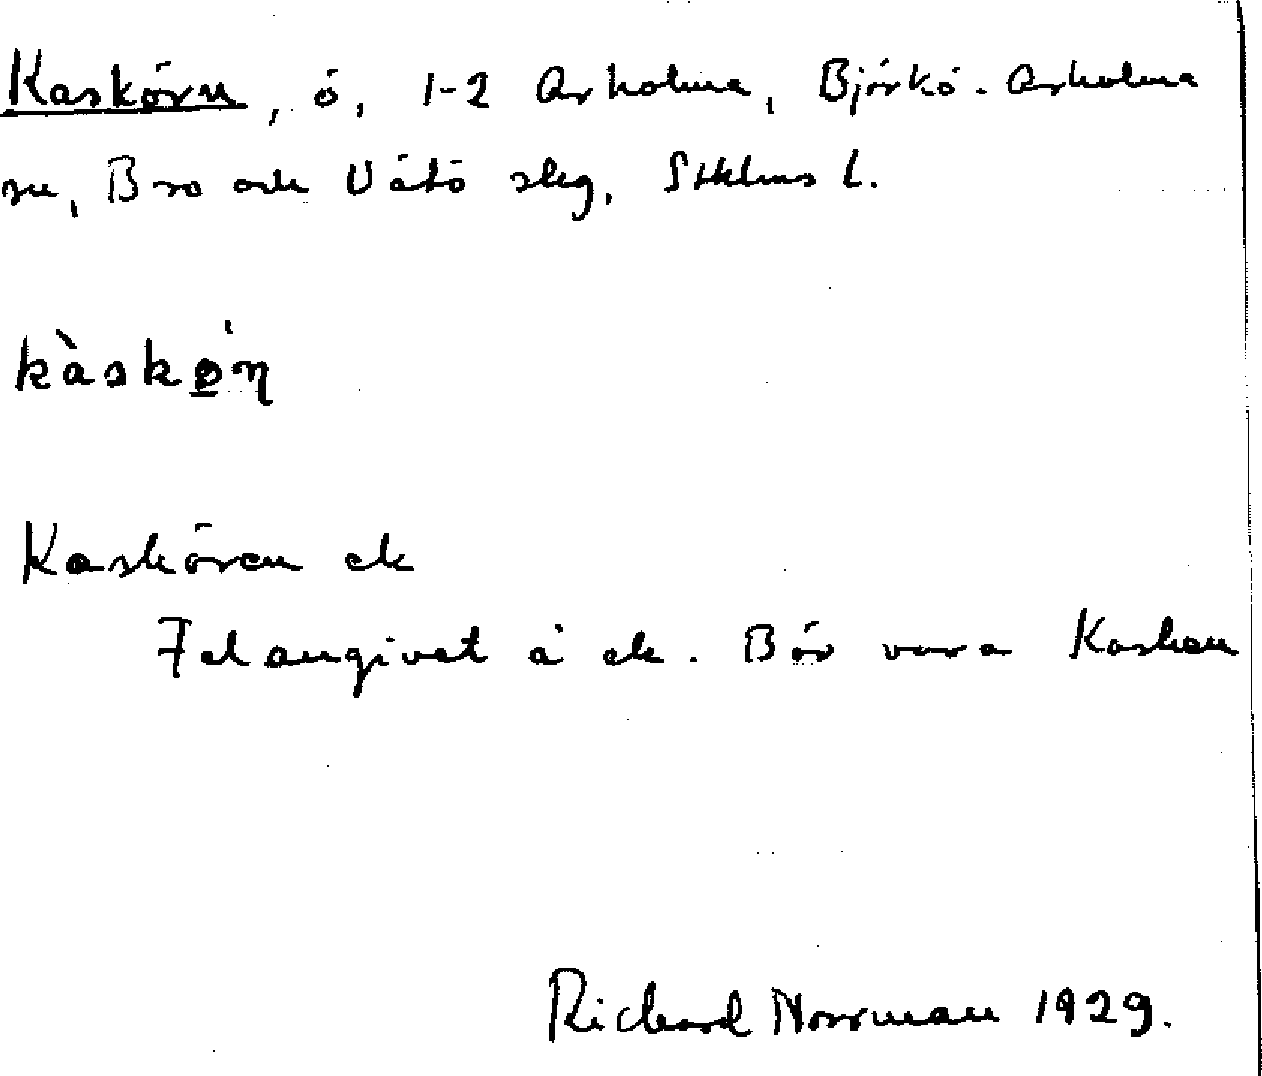 Kaskörn, ö, 1-2 Arholma, Björkö-Arholma
sn, Bro och Vätö skg, Sthlms l.
kàskø̠'ɳ
Kaskören ek
Felangivet å ek. Bör vara Kasken
Richard Norrman 1929.